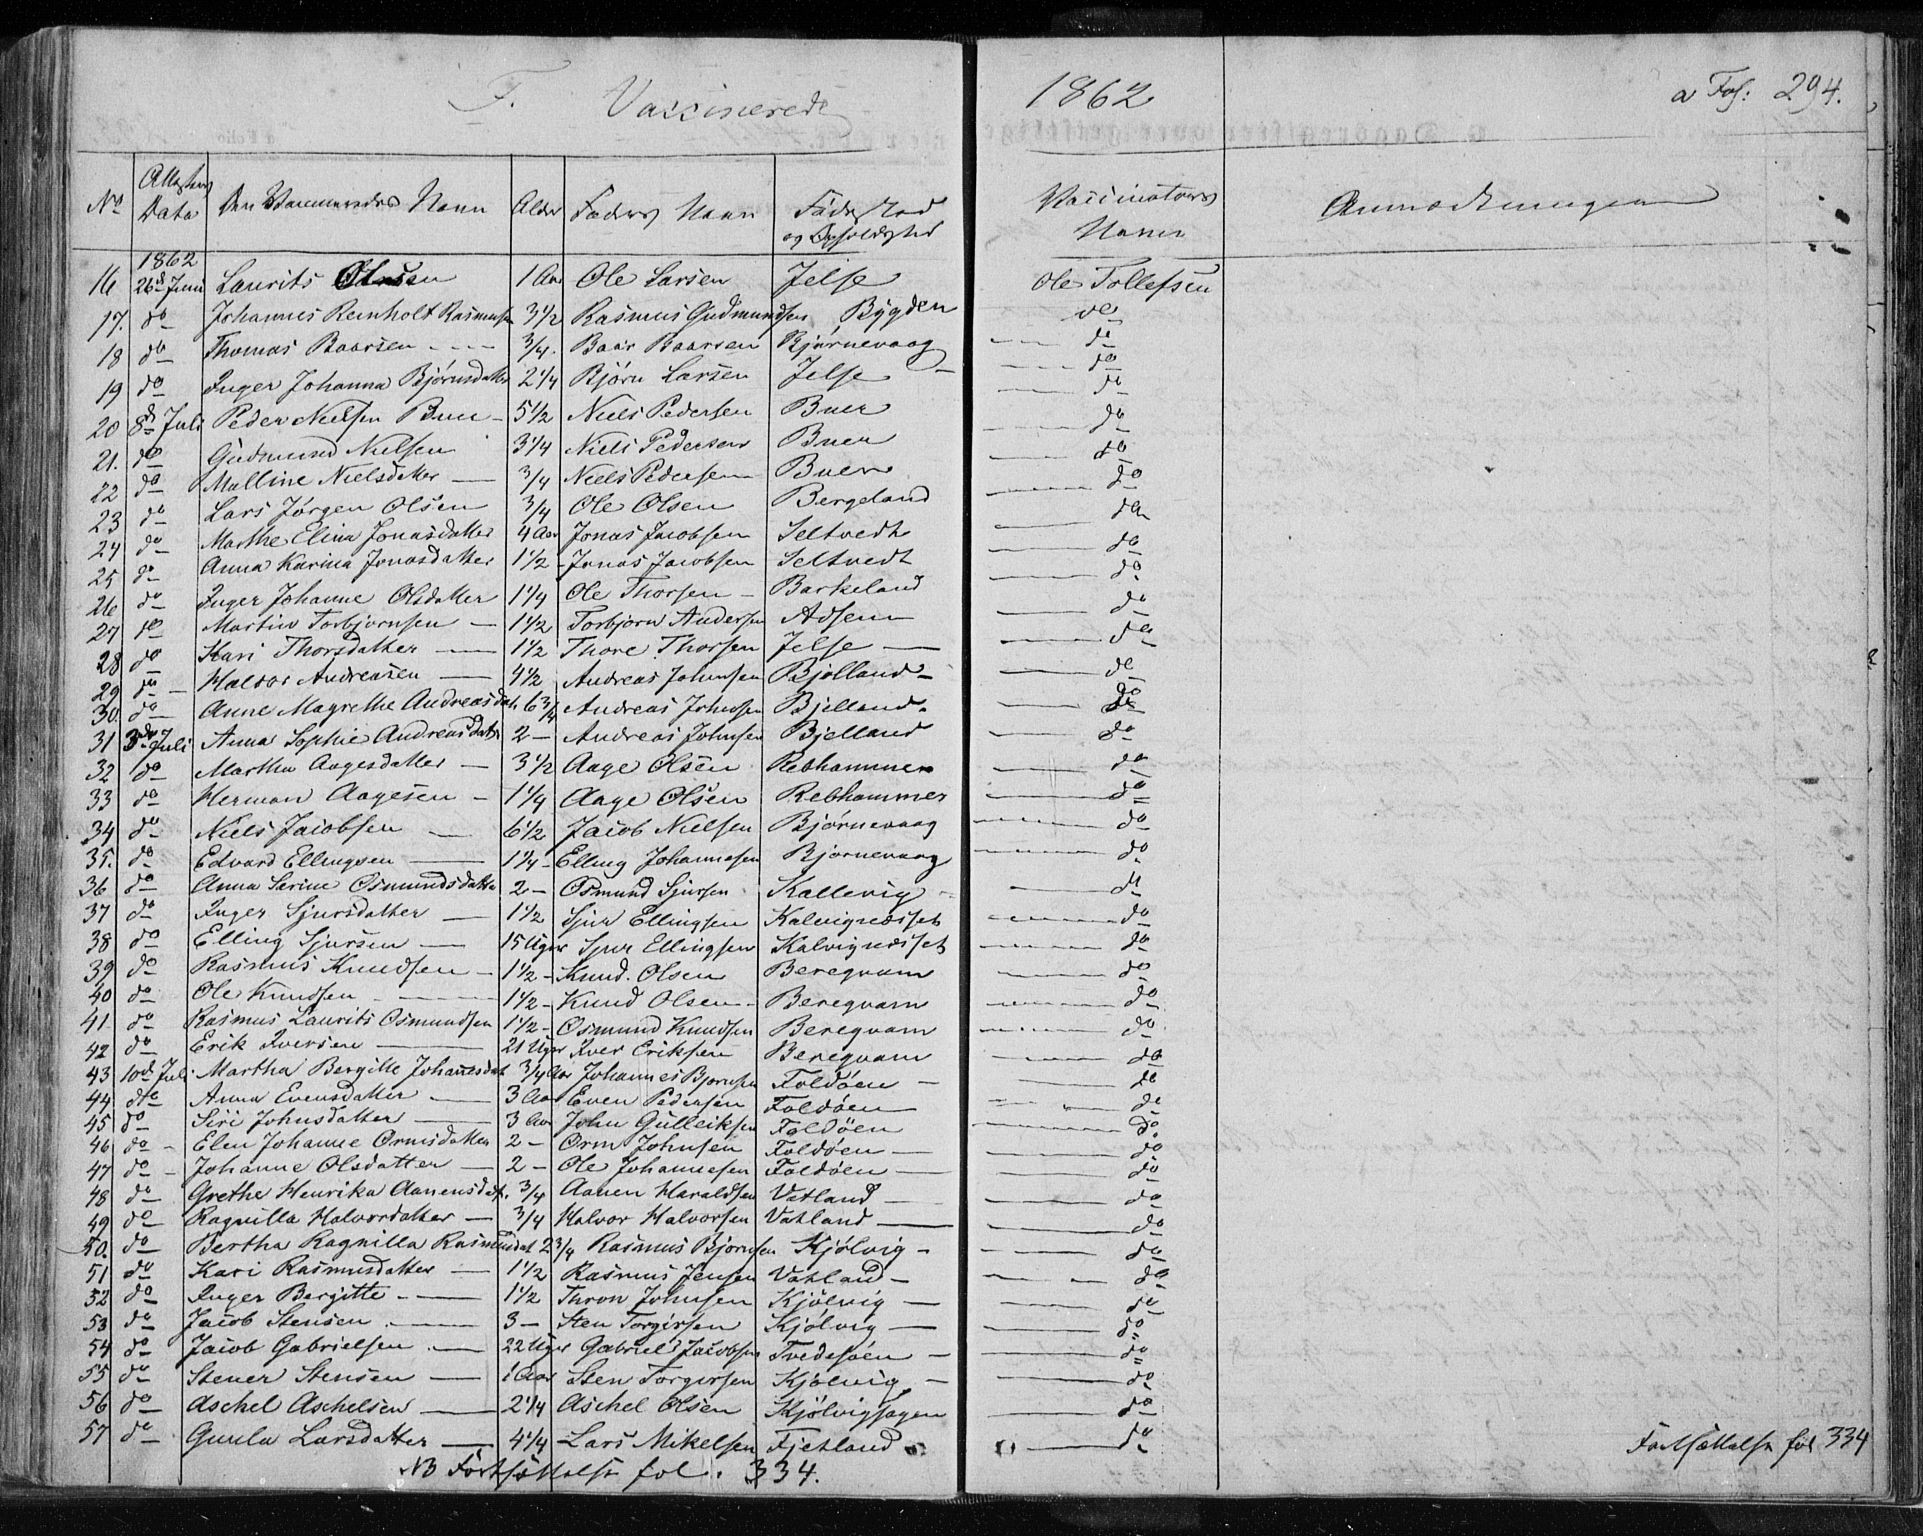 F. Vaccinerede 1862 a Fol: 294.
No Attestens Data Den Vaccineredes Navn Alder Faders Navn Fødested og Opholdsted Vaccinateurs Navn Anmærkninger
1862
16 26d Juni Laurits Olsen 1 Aar Ole Larsen Jelse Ole Tollefsen
17. do Johannes Reinholt Rasmusen 3 1/2 Rasmus Gudmundsen Bygden do
18 do Thomas Baarsen 3/4. Baar Baarsen Bjørnevaag do
19 do Inger Johanna Bjørnsdatter 2 1/4 Bjørn Larsen Jelse do
20 8d Juli Peder Nielsen Buer 5 1/2 Niels Pedersen Buer do
21. do Gudmund Nielsen 3 1/4 Niels Pedersen Buer do
22 do Malline Nielsdatter 3/4 Niels Pedersen Buer do
23 do Lars Jørgen Olsen 3/4 Ole Olsen Bergeland do
24 do Marthe Elina Jonasdatter 4 Aar Jonas Jacobsen Seltvedt do
25 do Anna Karina Jonasdatter 1 1/2 Jonas Jacobsen Seltvedt do
26 do Inger Johanne Olsdatter 1 1/4 Ole Thorsen Barkeland do
27 do Martin Torbjørnsen 1 1/2 Torbjørn Andersen Adsem do
28 do Kari Thorsdatter 1 1/2 Thore Thorsen Jelse do
29 do Halvor Andreasen 4 1/2 Andreas Johnsen Bjølland do
30 do Anne Magrethe Andreasdat 6 3/4 Andreas Johnsen Bjelland do
31 3d Juli Anna Sophie Andreasdatr 2 Andreas Johnsen Bjelland do
32 do Martha Aagesdatter 3 1/2 Aage Olsen Rebhammer do
33 do Herman Aagesen 1 1/4 Aage Olsen Rebhammer do
34 do Niels Jacobsen 6 1/2 Jacob Nielsen Bjørnevaag do
35. do Edvard Ellingsen 1 1/4 Elling Johannesen Bjørnevaag do
36 do Anna Serine Osmundsdatter 2 Osmund Sjursen Kallevig do
37 do Inger Sjursdatter 1 1/2 Sjur Ellingsen Kalvignedset do
38 do Elling Sjursen 15 Uger Sjur Ellingsen Kalvignedset do
39 do Rasmus Knudsen 1 1/2 Knud. Olsen Bereqvam do
40 do Ole Knudsen 1 1/2 Knud Olsen Bereqvam do
41 do Rasmus Laurits Osmundsen 1 1/2 Osmund Knudsen Bereqvam do
42 do Erik Iversen 21 Uger Iver Eriksen Bereqvam do
43 10d Juli Martha Bergitte Johannesdat 3/4 Aar Johannes Bjørnsen Foldøen do
44 do Anna Evensdatter 3 Aar Even Pedersen Foldøen do
45 do Siri Johnsdatter 3 Aar John Gulleiksen Foldøen do
46 do Elen Johanne Ormsdatter 2 Orm Johnsen Foldøen do
47 do Johanne Olsdatter 2 Ole Johannesen Foldøen do
48 do Grethe Henrika Aanensdat. 3/4 Aanen Haraldsen Vatland do
49 do Ragnilla Halvordatter 3/4 Halvor Halvorsen Vatland do
50. do Bertha Ragnilla Rasmusdat 2 3/4 Rasmus Bjørnsen Kjølvig do
51 do Kari Rasmusdatter 1 1/2 Rasmus Jensen Vatland do
52 do Inger Bergitte 1 1/2 Thron Johnsen Kjølvig do
53 do Jacob Stensen 3 Sten Torgersen Kjølvig do
54 do Jacob Gabrielsen 22 Uger Gabriel Jacobsen Tvedesøen do
55 do Stener Stensen 1 Aar Sten Torgersen Kjølvig do
56 do Aschel Aschelsen 2 1/4 Aschel Olsen Kjølvigsagen do
57 do Gunla Larsdatter 4 1/4 Lars Mikelsen Fjetland do
NB Fortsættelse fol. 334.
Fortsættelse fol 334